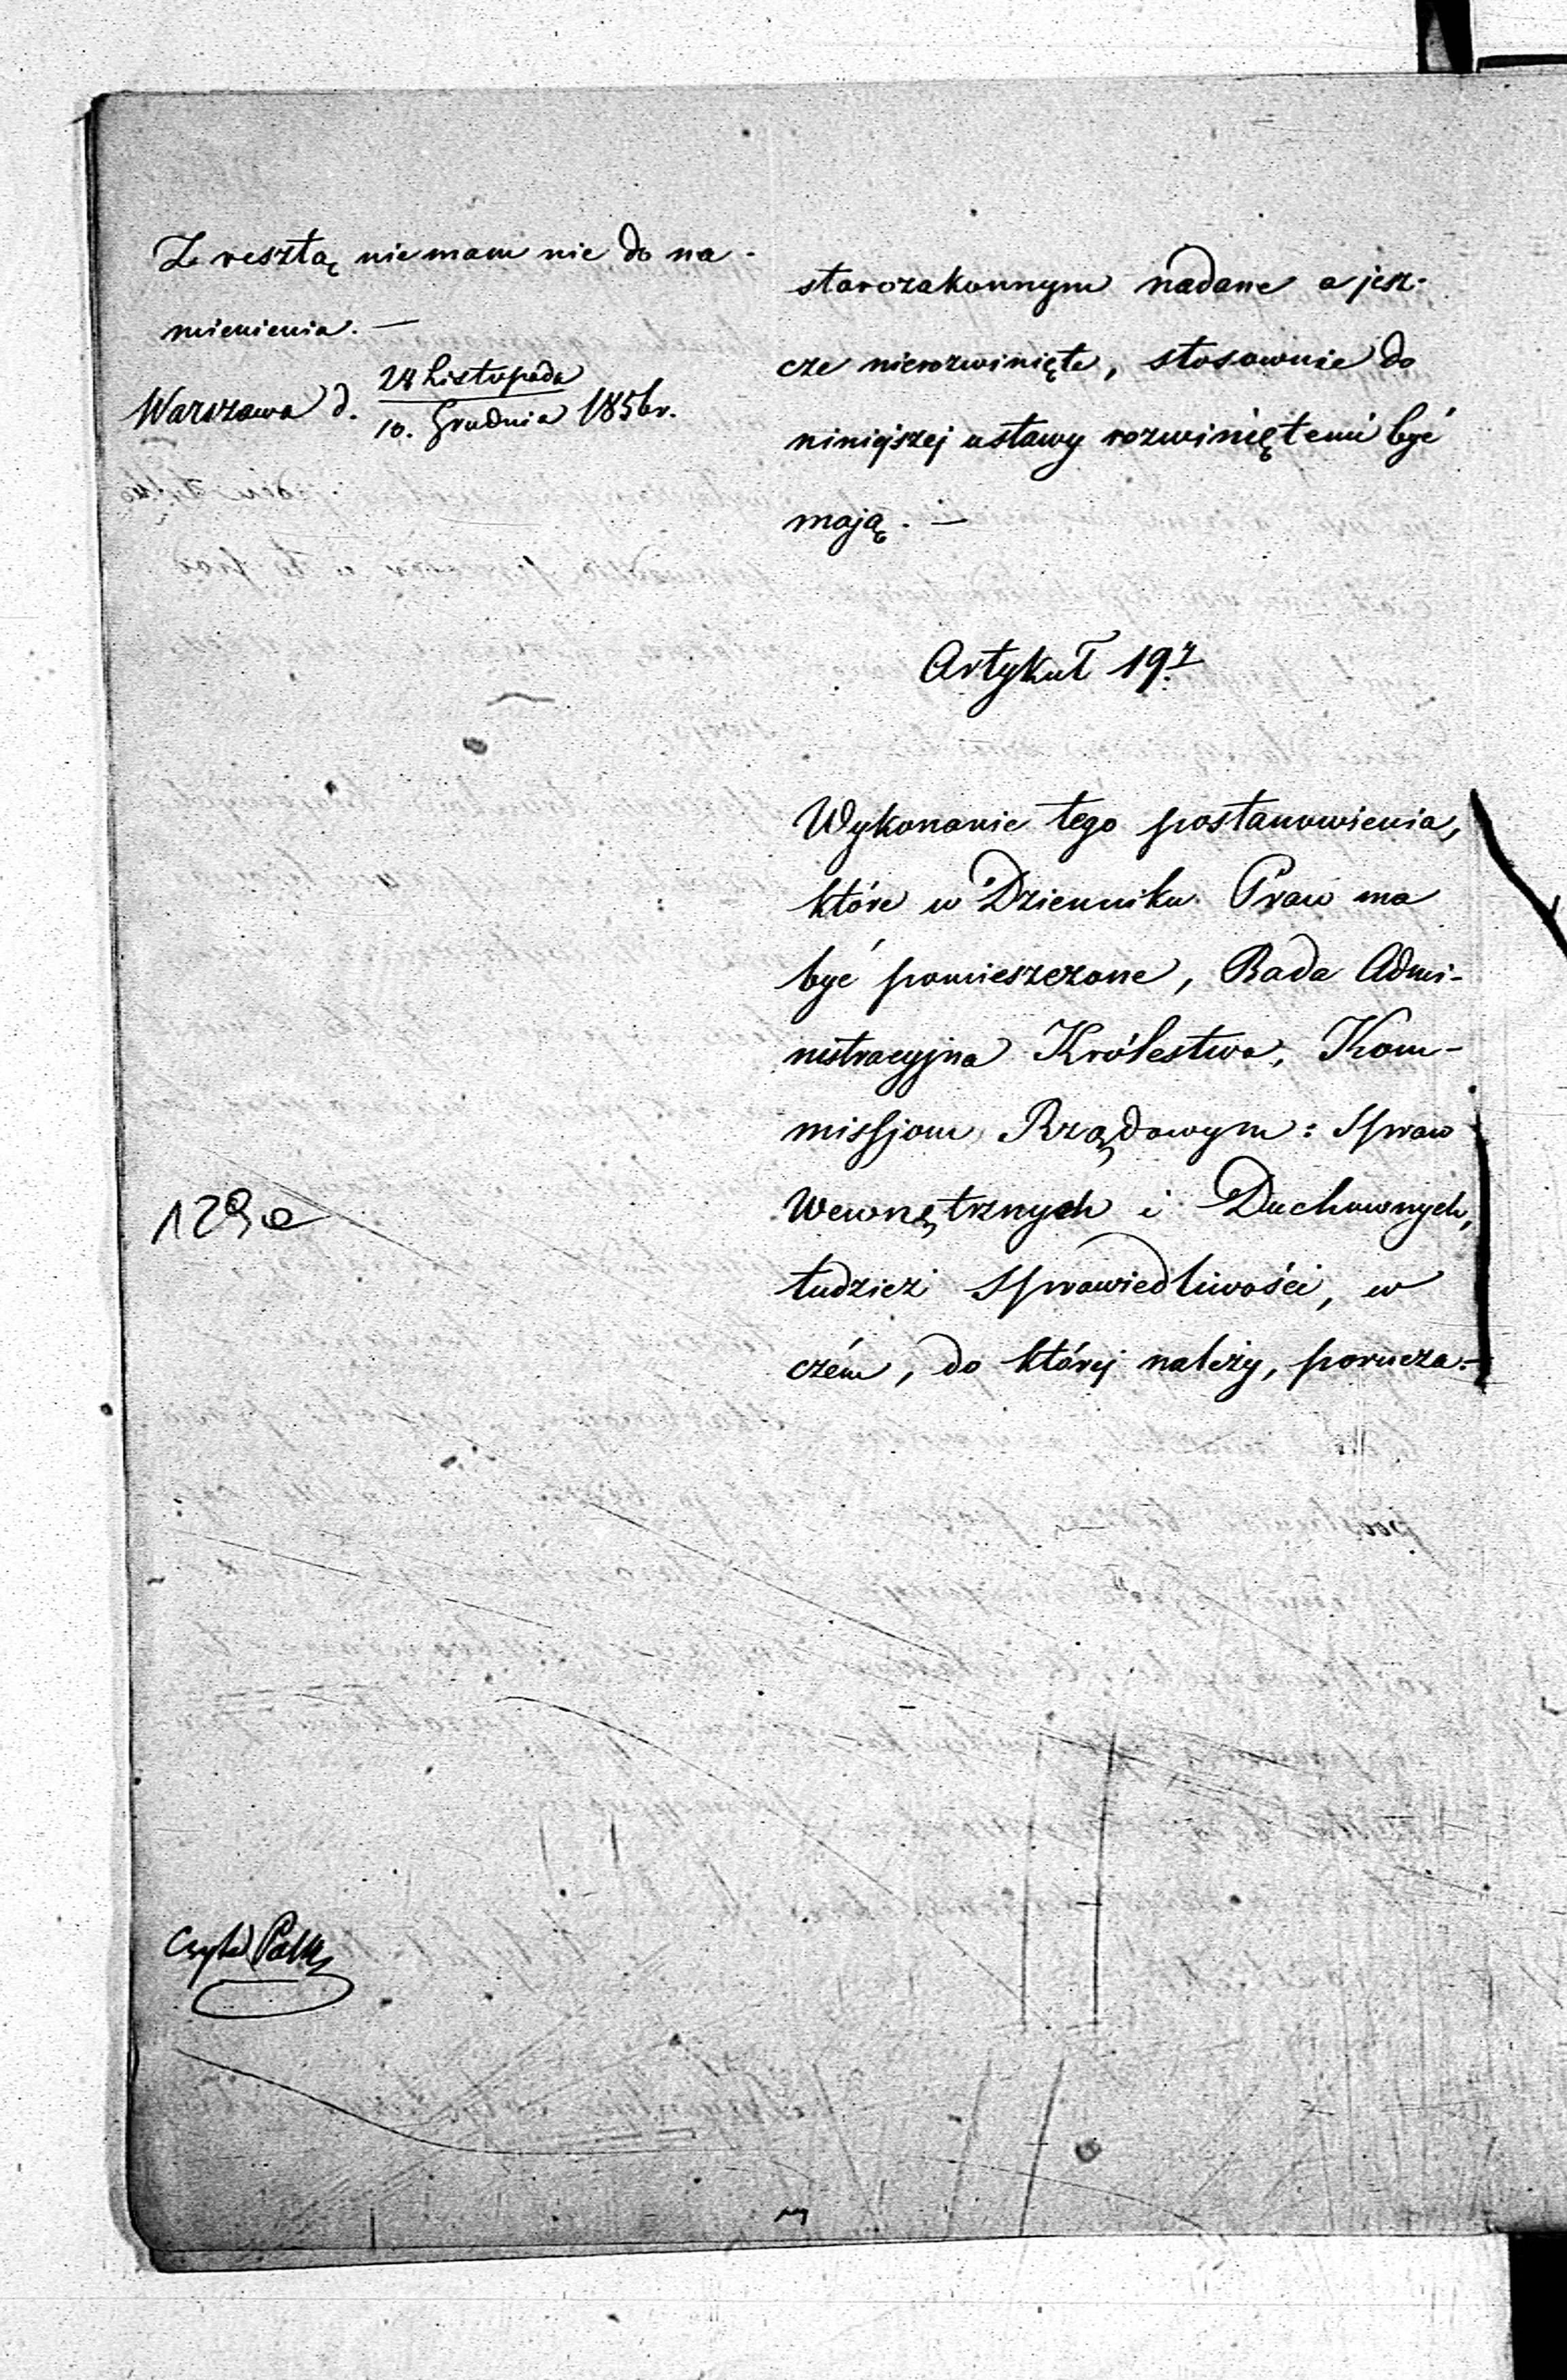 Z resztą nie mam nic do na-
mienienia. —
Warszawa d. 28 Listopada
10. Grudnia 1856 r.
129a
Czytał
starozakonnym nadane a jesz-
cze nierozwinięte, stosownie do
niniejszej ustawy rozwiniętemi być
mają. —
Artykuł 19ty
Wykonanie tego postanowienia,
które w Dzienniku Praw ma
być pomieszczone, Rada Admi-
nistracyjna Królestwa, Kom-
missjom Rządowym: Spraw
Wewnętrznych i Duchownych,
tudzież Sprawiedliwości, w
czém, do której należy, porucza.—